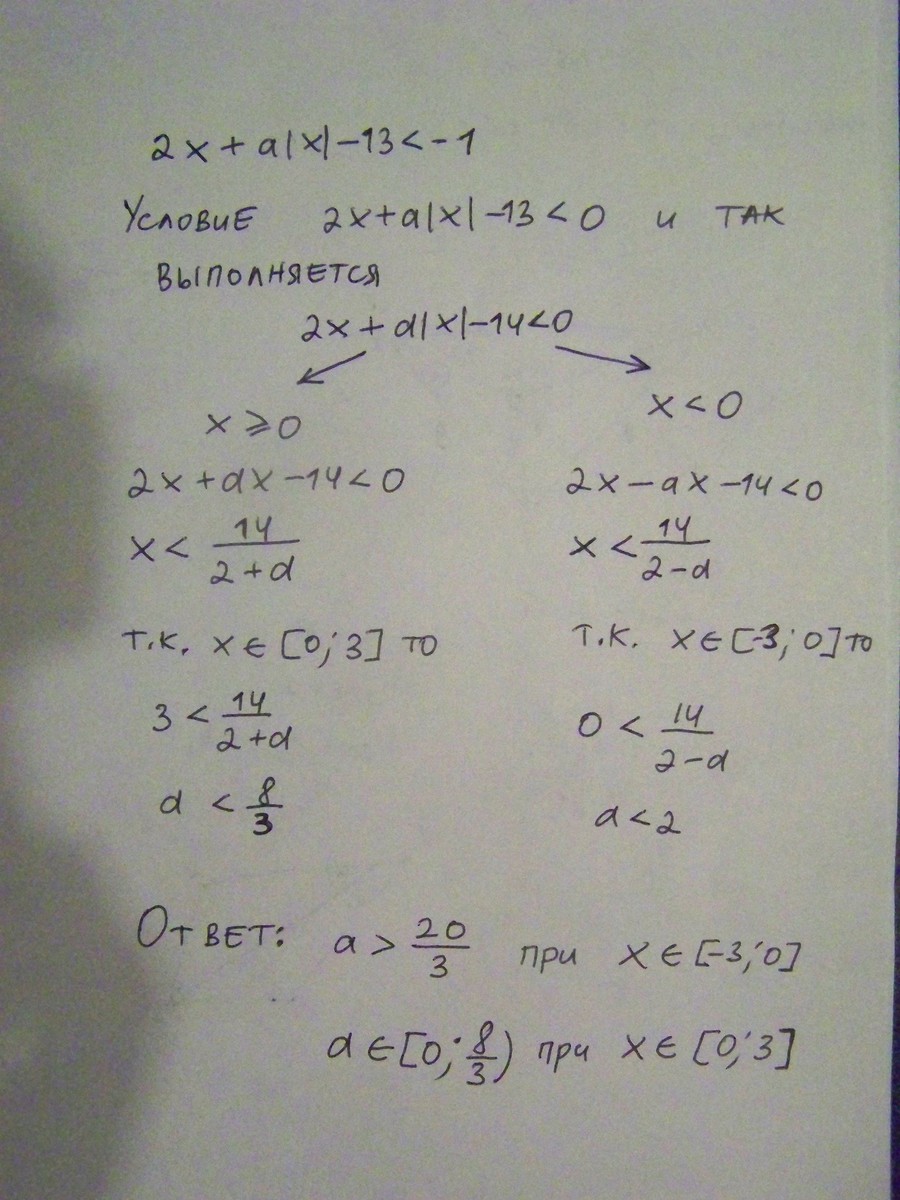 2x + a|x| - 13 < -1
Условие 2x + a|x| - 13 < 0 и так
выполняется
2x + a|x| - 14 < 0
x ⩾ 0
x < 0
2x + ax - 14 < 0
2x - ax - 14 < 0
x < 14/(2+a)
x < 14/(2-a)
т.к. x ∈ [0; 3] то
т.к. x ∈ [-3; 0] то
3 < 14/(2+a)
0 < 14/(2-a)
a < 8/3
a < 2
Ответ: a > 20/3 при x ∈ [-3; 0]
a ∈ [0; 8/3) при x ∈ [0; 3]